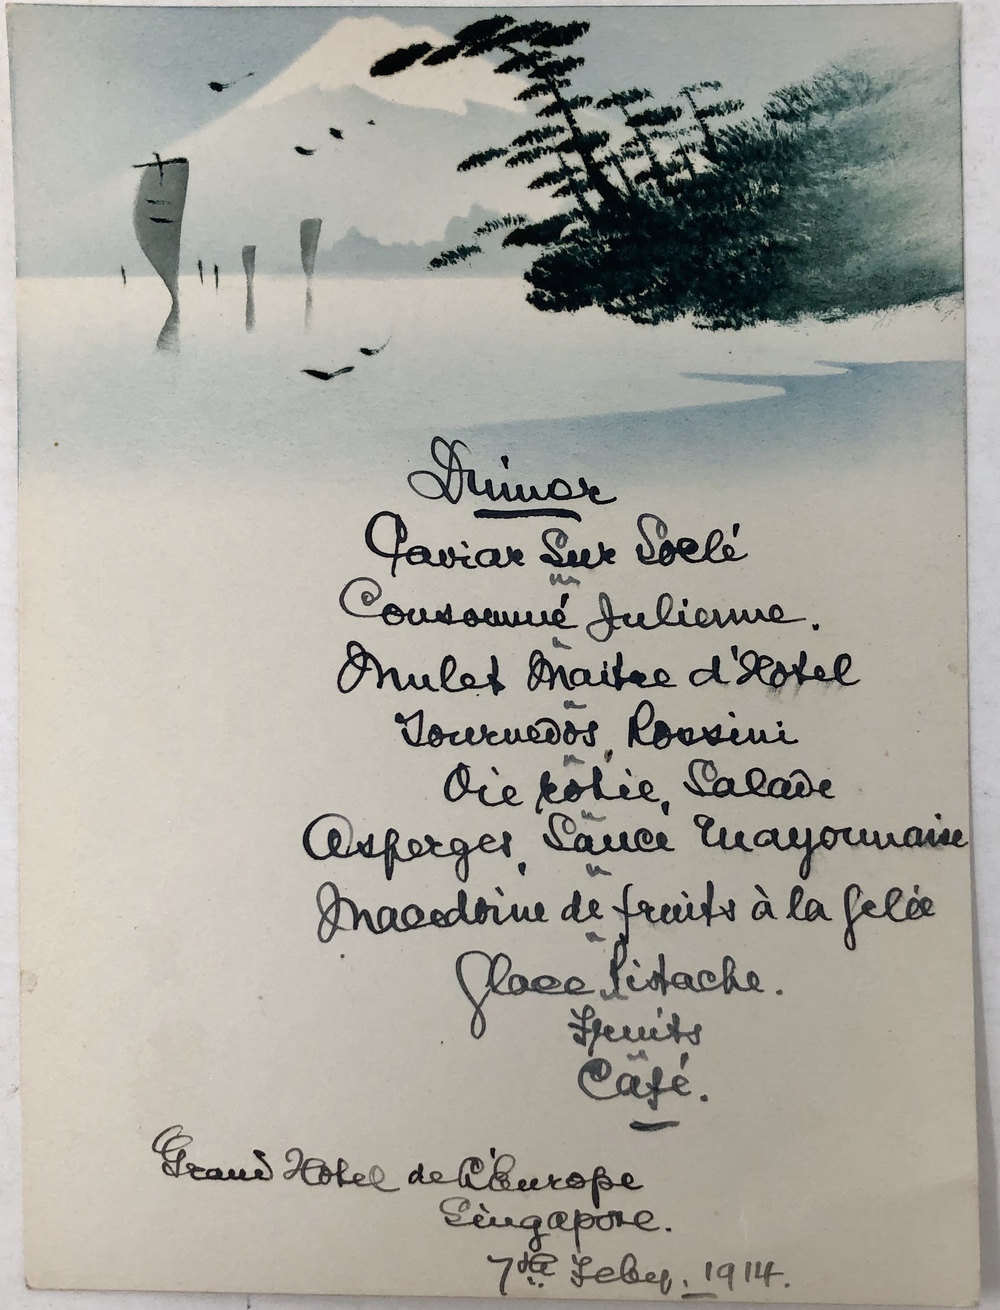 Dinner
Caviar Sur Soclé
Consommé Julienne.
Mulet Maitre d'Hotel
Tournedos, Rossini
Oie rôtie, Salade
Asperges, Sauce Mayonnaise
Macedoine de fruits à la Gelée
Glace Pistache.
Fruits
Café.
Grand Hotel de L'Europe
Singapore.
7th Feby. 1914.